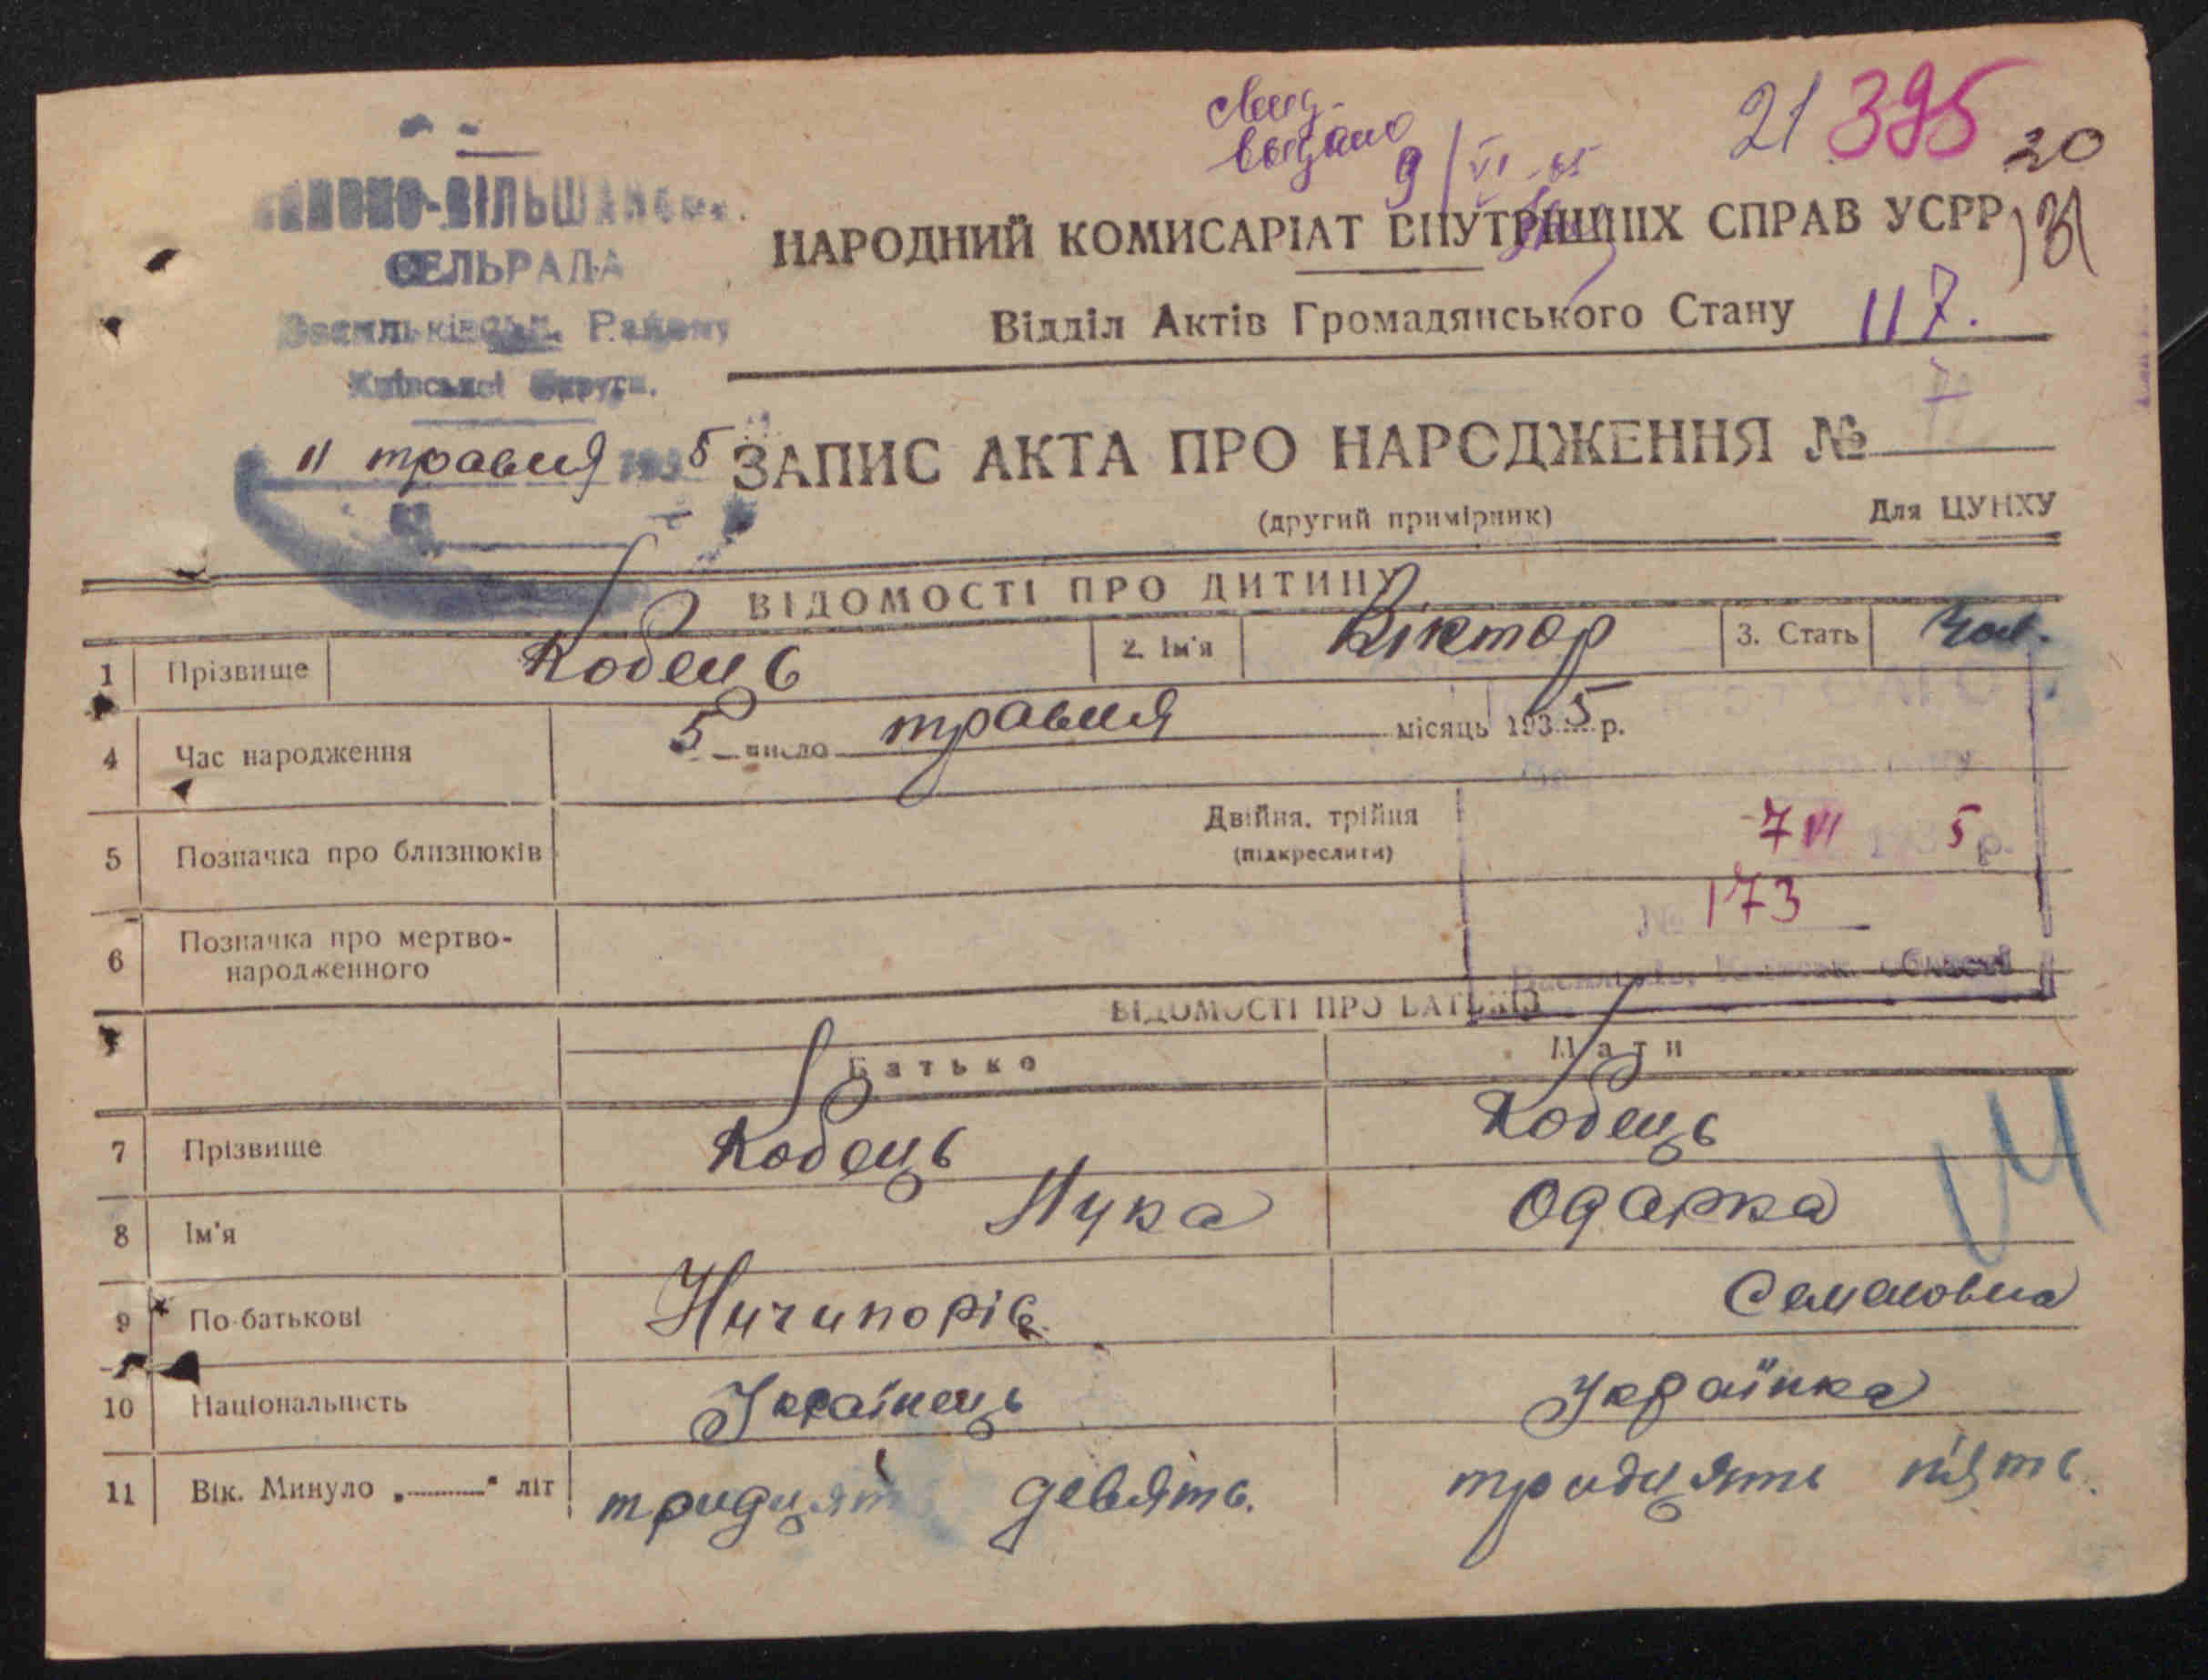 21 395 20
видано
9/VI-65
СЕЛЬРАДА
Району
Київської Округи.
11 травня 1935
НАРОДНИЙ КОМИСАРІАТ ВНУТРІШНІХ СПРАВ УСРР
131
Відділ Актів Громадянського Стану 117.
ЗАПИС АКТА ПРО НАРОДЖЕННЯ №
7
(другий примірник)
Для ЦУНХУ
ВІДОМОСТІ ПРО ДИТИНУ
1 Прізвище Кобець 2. Ім'я Віктор 3. Стать Чол.
4 Час народження 5 число травня місяць 1935 р.
5 Позначка про близнюків Двійня, трійня
(підкреслити)
7 VI 1935 р.
№ 173
6 Позначка про мертво-
народженного
Київськ. области
ВІДОМОСТІ ПРО БАТЬКІВ
Батько Мати
7 Прізвище Кобець Кобець
8 Ім'я Лука Одарка
9 По-батькові Ничипорів Семеновна
10 Національність Українець Українка
11 Вік. Минуло „........" літ тридцять девять. тридцять пять.